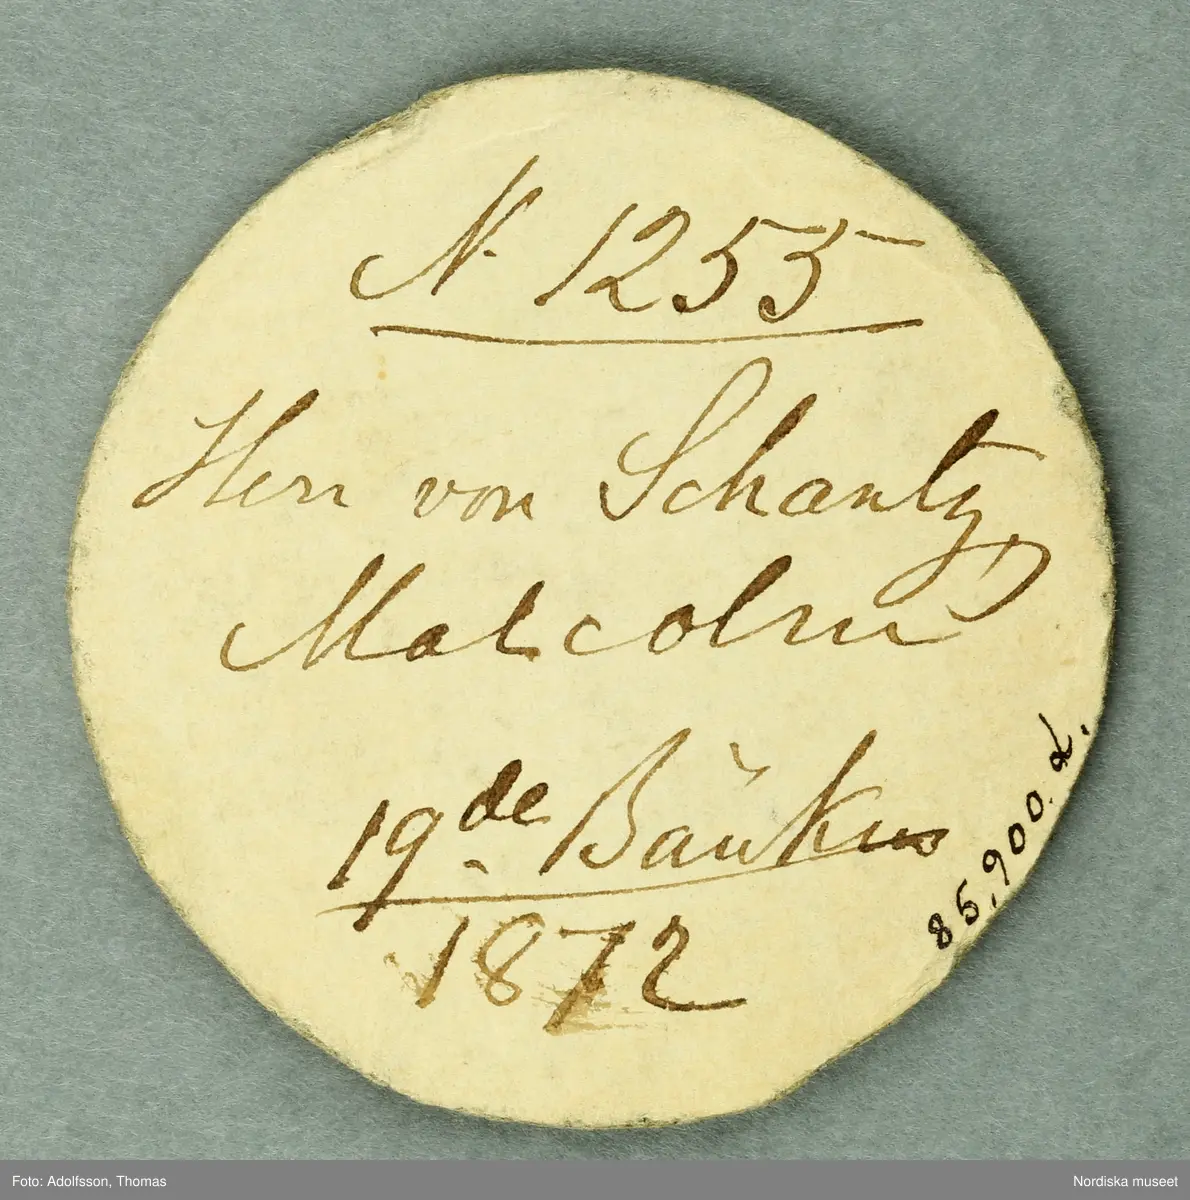 N. 1255
Herr von Schantz,
Malcolm
19de Bänken
1872
85,900.d.
Foto: Adolfsson, Thomas
Nordiska museet